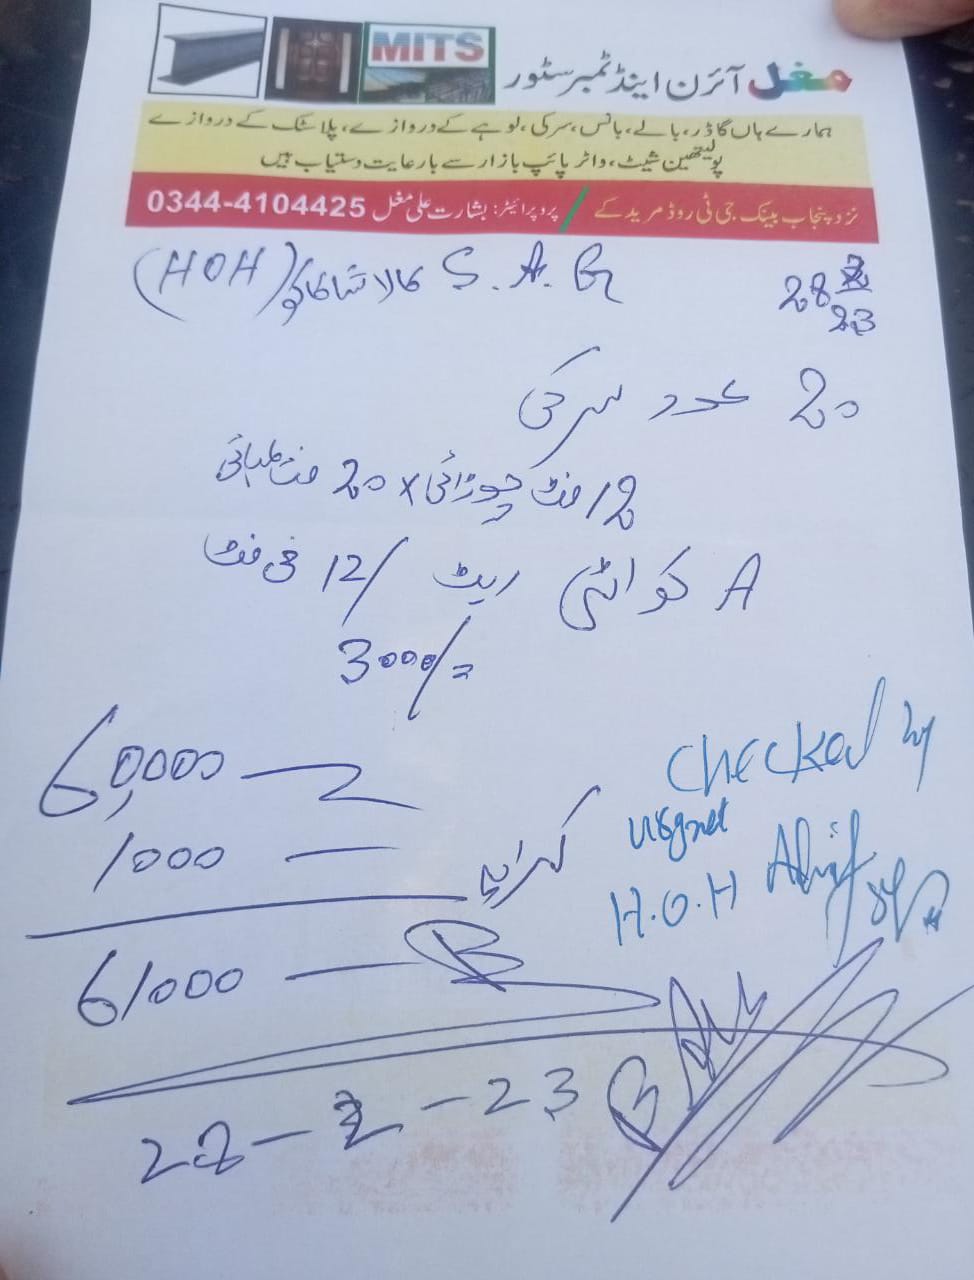 MITS
مغل آئرن اینڈ ٹمبر سٹور
ہمارے ہاں گاڈر، بالے، بانس، سرکی، لوہے کے دروازے، پلاسٹک کے دروازے
پولیتھین شیٹ، واٹر پائپ بازار سے بارعایت دستیاب ہیں
نزد پنجاب بینک جی ٹی روڈ مریدکے / پروپرائیٹر: بشارت علی مغل 0344-4104425
28 2 23
S.A.G کالا شاہ کاکو (HOH)
20 عدد سرکی
12 فٹ چوڑائی x 20 فٹ لمبائی
A کوالٹی ریٹ 12/ فی فٹ
3000/=
60,000
1000 کرایہ
61000
Checked by
H.O.H
28-2-23